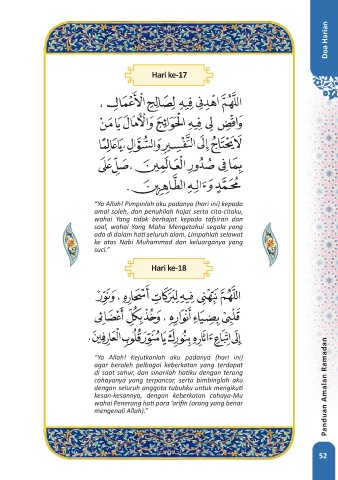 Doa Harian
Hari ke-17
اللَّهُمَّ اهْدِنِي فِيهِ لِصَالِحِ الْأَعْمَالِ ،
وَاقْضِ لِي فِيهِ الْحَوَائِجَ وَالْآمَالَ يَا مَنْ
لَا يَحْتَاجُ إِلَى التَّفْسِيرِ وَالسُّؤَالِ ، يَا عَالِمًا
بِمَا فِي صُدُورِ الْعَالَمِينَ ، صَلِّ عَلَى
مُحَمَّدٍ وَءَالِهِ الطَّاهِرِينَ .
“Ya Allah! Pimpinlah aku padanya (hari ini) kepada
amal soleh, dan penuhilah hajat serta cita-citaku,
wahai Yang tidak berhajat kepada tafsiran dan
soal, wahai Yang Maha Mengetahui segala yang
ada di dalam hati seluruh alam. Limpahlah selawat
ke atas Nabi Muhammad dan keluarganya yang
suci.”
Hari ke-18
اللَّهُمَّ نَبِّهْنِي فِيهِ لِبَرَكَاتِ أَسْحَارِهِ ، وَنَوِّرْ
قَلْبِي بِضِيَاءِ أَنْوَارِهِ ، وَخُذْ بِكُلِّ أَعْضَائِي
إِلَى اتِّبَاعِ ءَاثَارِهِ بِنُورِكَ يَا مُنَوِّرَ قُلُوبِ الْعَارِفِينَ.
“Ya Allah! Kejutkanlah aku padanya (hari ini)
agar beroleh pelbagai keberkatan yang terdapat
di saat sahur, dan sinarilah hatiku dengan terang
cahayanya yang terpancar, serta bimbinglah aku
dengan seluruh anggota tubuhku untuk mengikuti
kesan-kesannya, dengan keberkatan cahaya-Mu
wahai Penerang hati para ‘arifin (orang yang benar
mengenali Allah).”
Panduan Amalan Ramadan
52